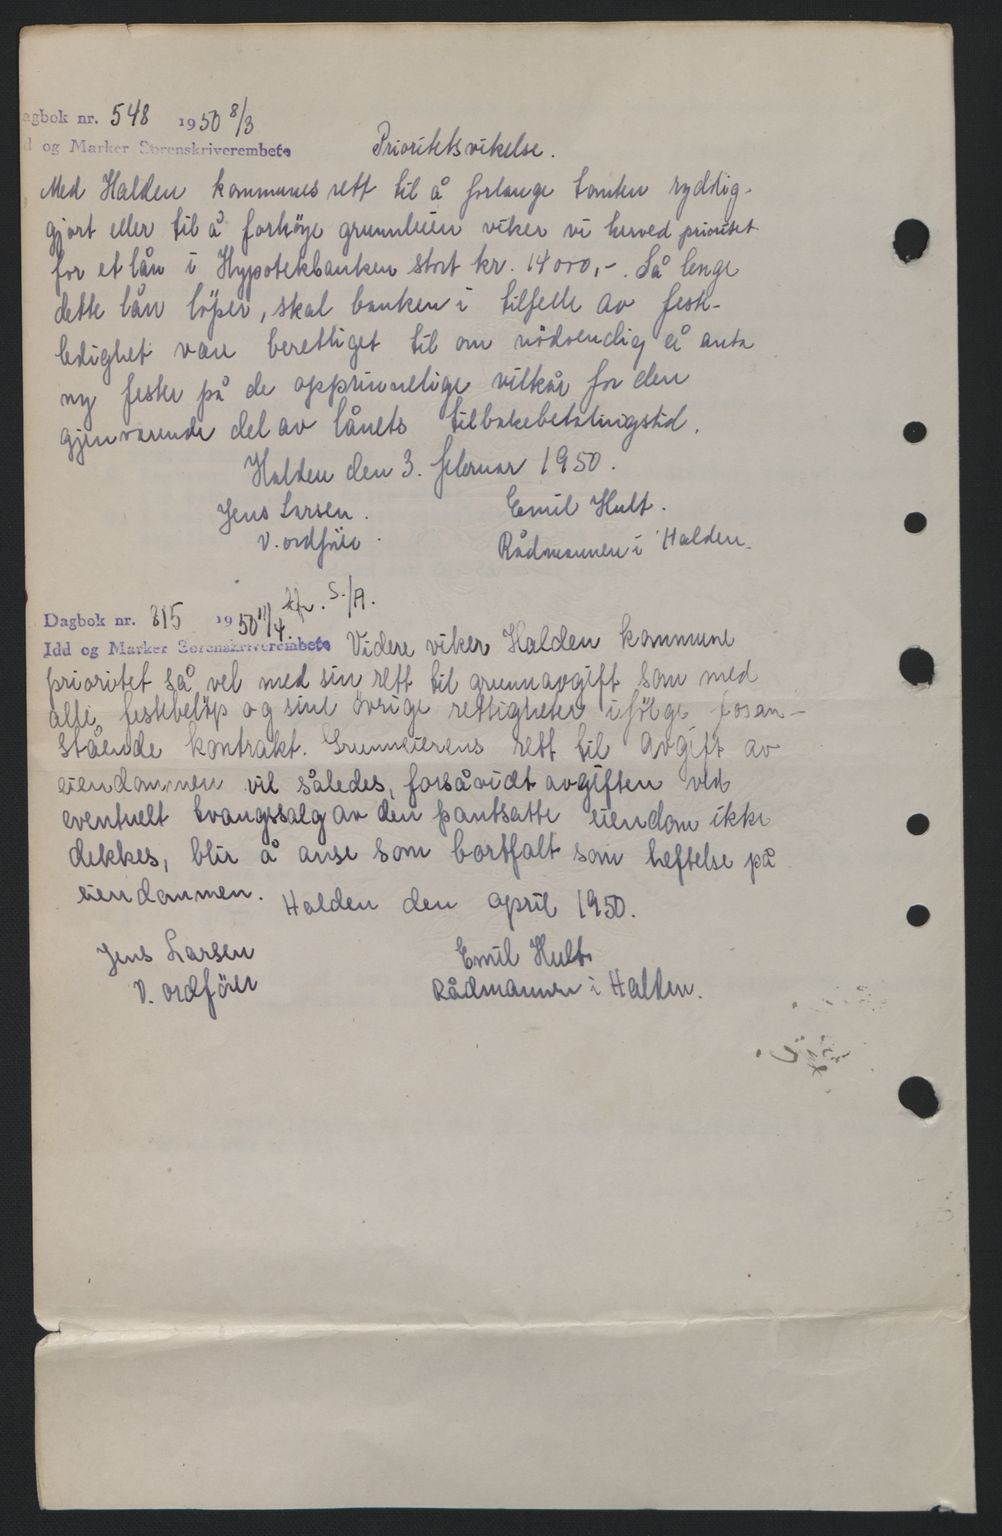 agbok nr. 548 1950 8/3
d og Marker Sorenskriverembete
Prioritetsvikelse.
Med Halden kommunes rett til å forlange tomten ryddig-
gjort eller til å forhöye grunnleien viker vi herved prioritet
for et lån i Hypotekbanken stort kr. 14000,-. Så lenge
dette lån löper, skal banken i tilfelle av feste-
ledighet være berettiget til om nödvendig å anta
ny fester på de opprinnelige vilkår for den
gjenværende del av lånets tilbakebetalingstid.
Halden den 3. februar 1950.
Jens Larsen. Emil Hult.
V. ordförer. Rådmannen i Halden.
kfr. S./A.
Dagbok nr. 815 1950 11/4.
Idd og Marker Sorenskriverembete Videre viker Halden kommune
prioritet så vel med sin rett til grunnavgift som med
alle festebelöp og sine övrige rettigheter ifölge foran-
stående kontrakt. Grunneierens rett til avgift av
eiendommen vil således, forsåvidt avgiften ved
eventuelt tvangssalg av den pantsatte eiendom ikke
dekkes, blir å anse som bortfalt som heftelse på
eiendommen.
Halden den april 1950.
Jens Larsen Emil Hult.
V. ordförer Rådmannen i Halden.